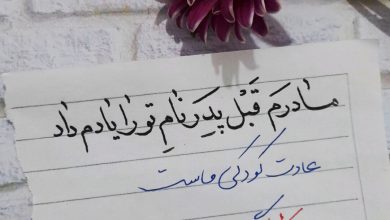 مادرم قَبْل پِدَر نامِ تو را یادم داد
عادت کودکی ماست